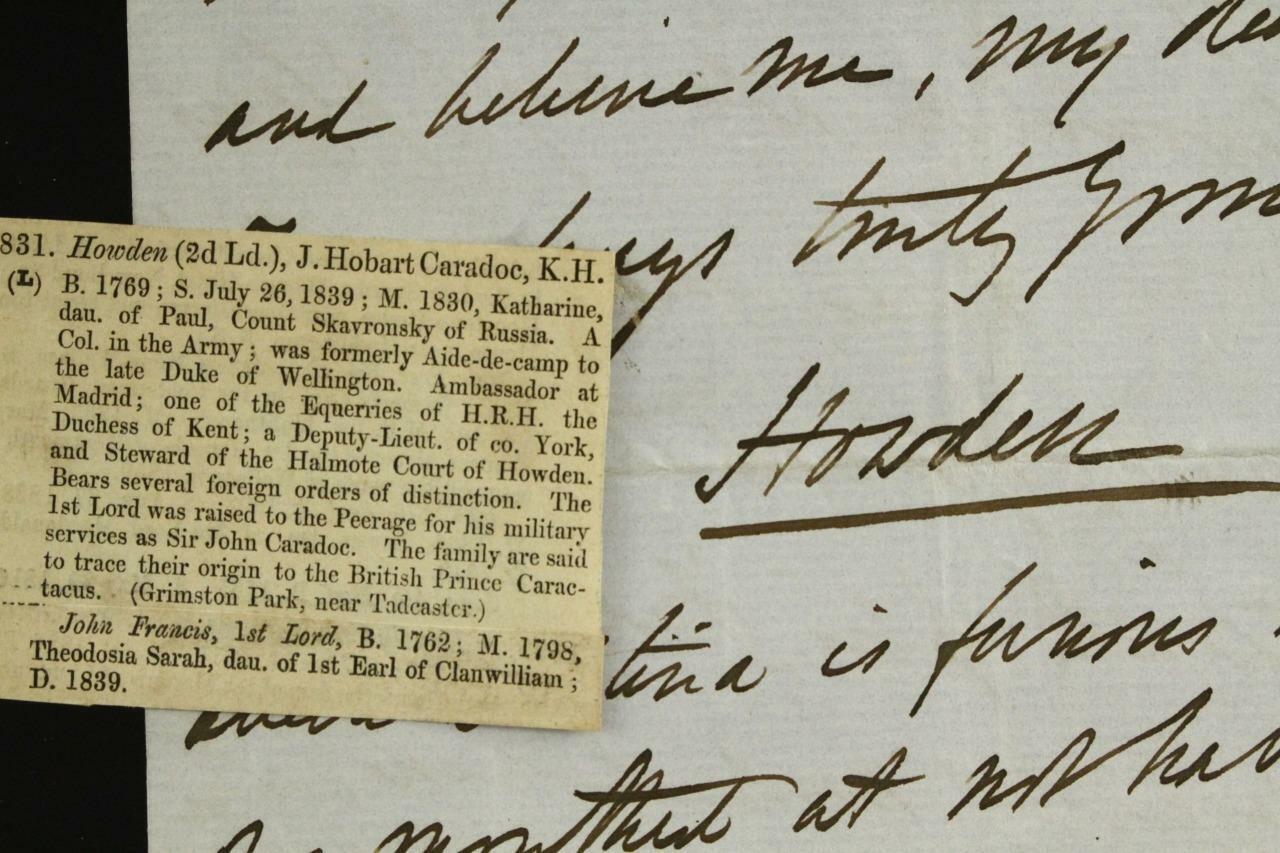 and believe me, my
truly
Howden
is furious
at not
831. Howden (2d Ld.), J. Hobart Caradoc, K.H.
(L) B. 1769; S. July 26, 1839; M. 1830, Katharine,
dau. of Paul, Count Skavronsky of Russia. A
Col. in the Army; was formerly Aide-de-camp to
the late Duke of Wellington. Ambassador at
Madrid; one of the Equerries of H.R.H. the
Duchess of Kent; a Deputy-Lieut. of co. York,
and Steward of the Halmote Court of Howden.
Bears several foreign orders of distinction. The
1st Lord was raised to the Peerage for his military
services as Sir John Caradoc. The family are said
to trace their origin to the British Prince Carac-
tacus. (Grimston Park, near Tadcaster.)
John Francis, 1st Lord, B. 1762; M. 1798,
Theodosia Sarah, dau. of 1st Earl of Clanwilliam;
D. 1839.